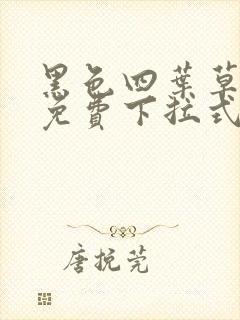 黑色四葉草
免費下拉式
唐挽莞